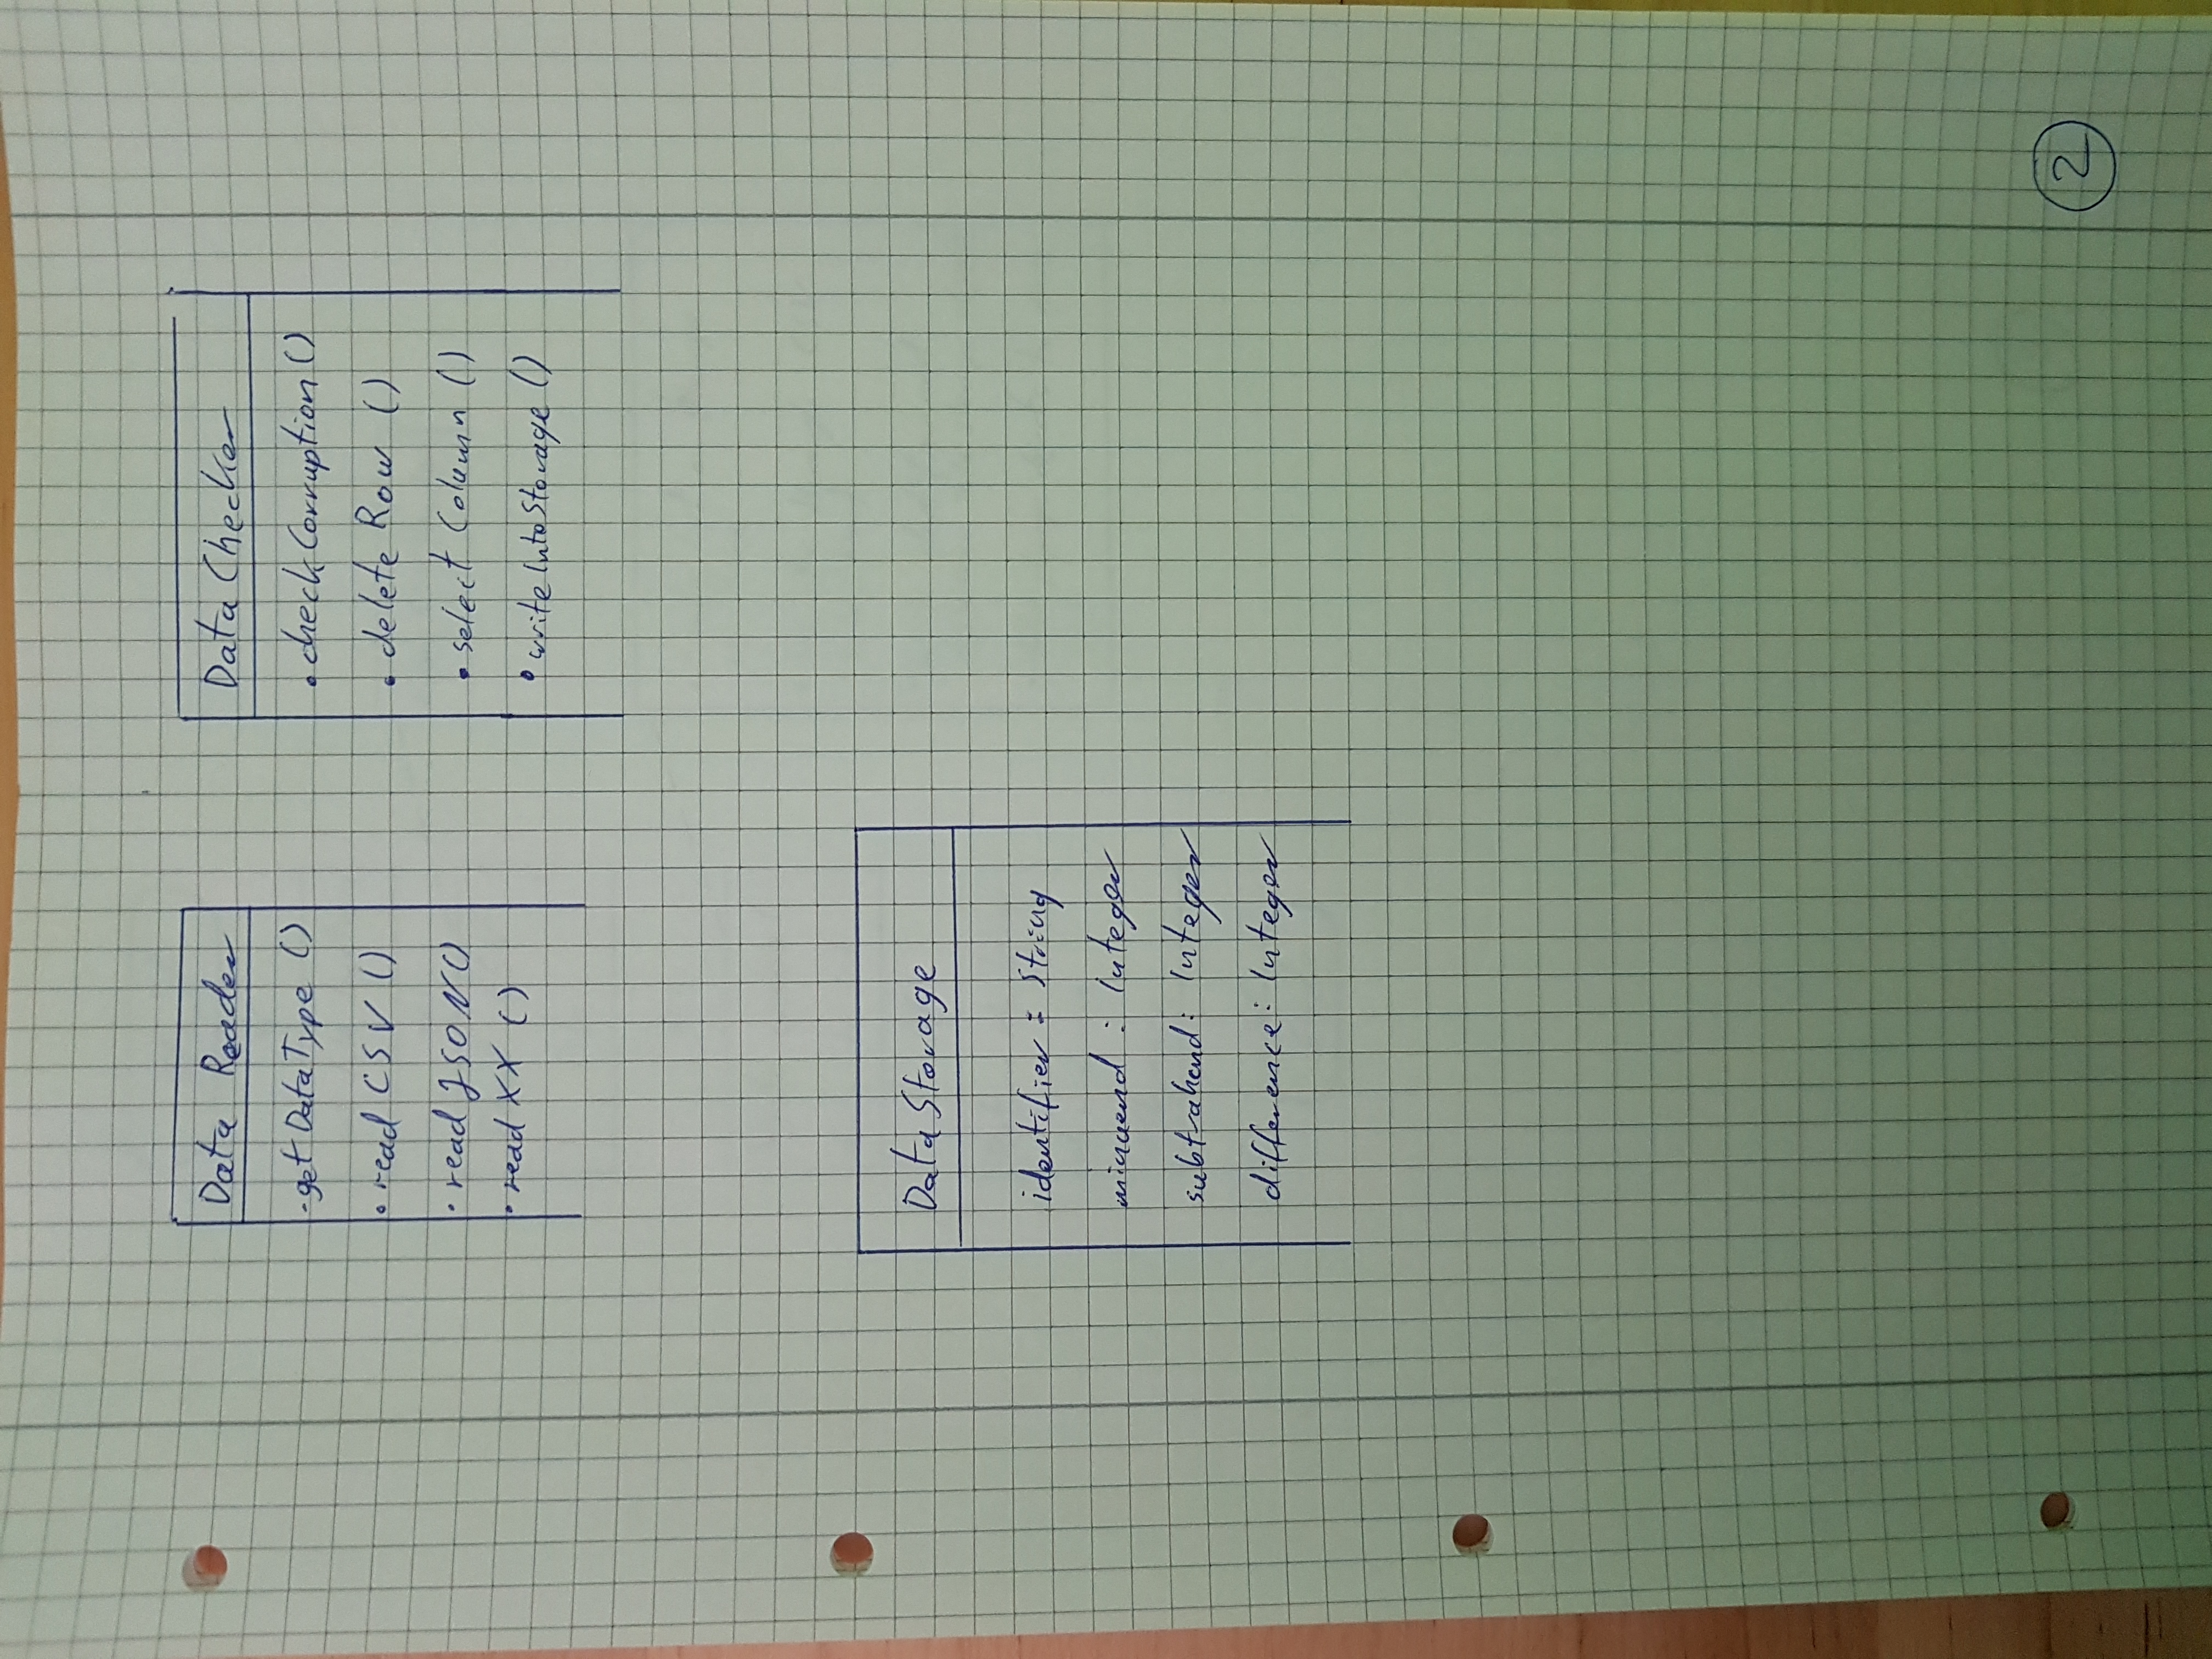 Data Reader
- getDataType ()
• read CSV ()
• read JSON ()
• read XX ()
Data Checker
• checkCorruption ()
• delete Row ()
• select Column ()
• writeIntoStorage ()
Data Storage
identifier : String
minuend : Integer
subtrahend : Integer
difference : Integer
2